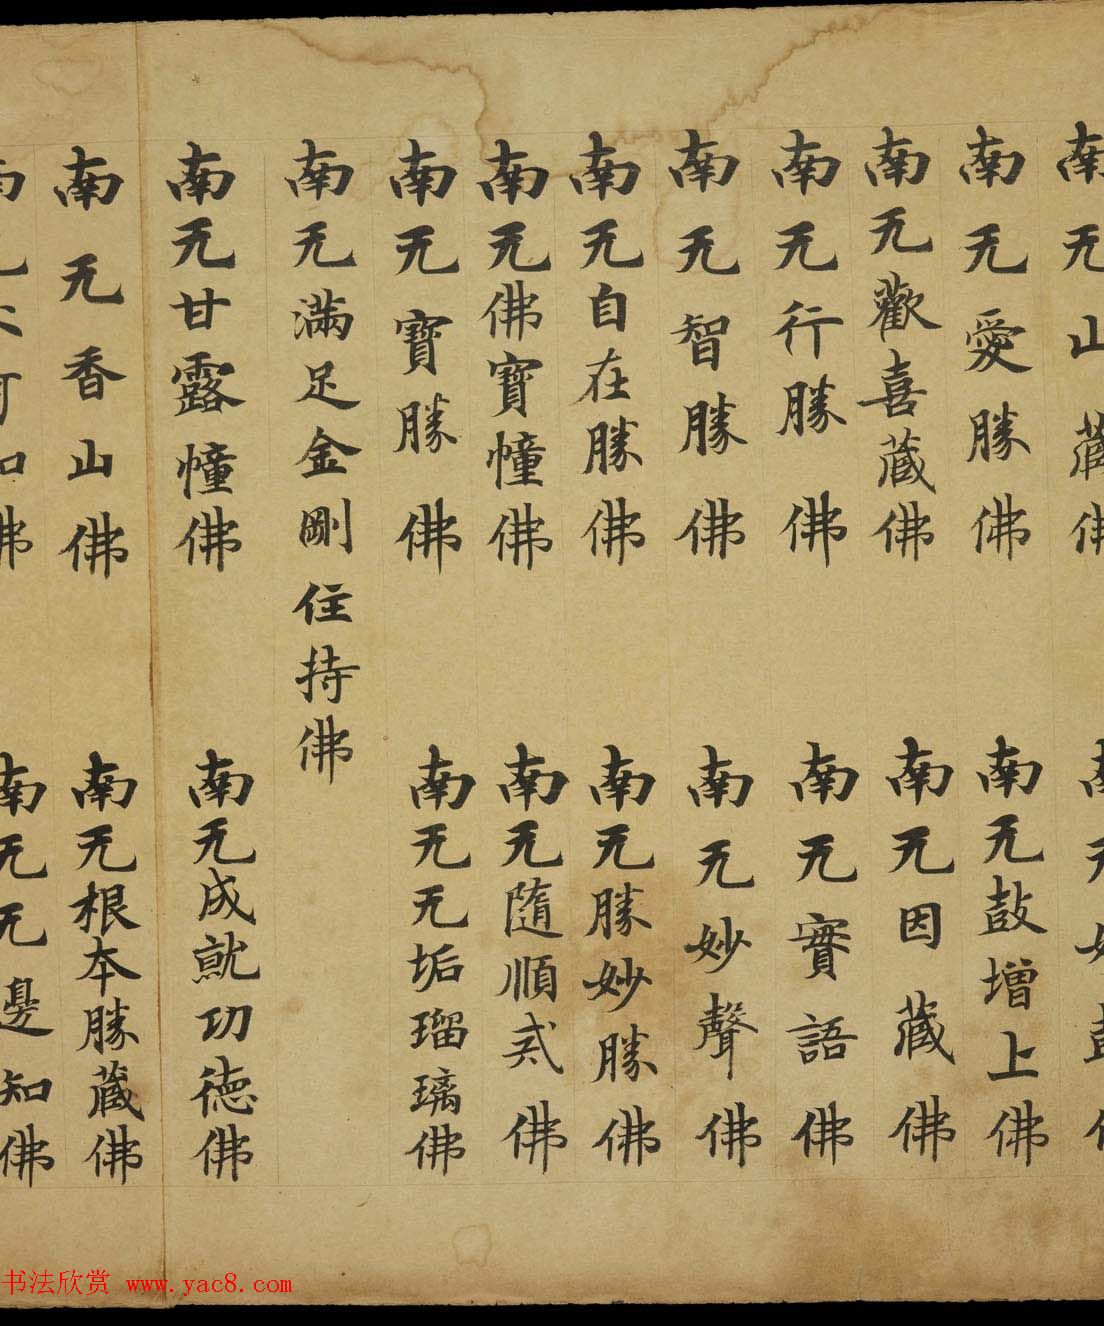 南无山藏佛
南无妙鼓佛
南无愛勝佛
南无鼓增上佛
南无歡喜藏佛
南无因藏佛
南无行勝佛
南无實語佛
南无智勝佛
南无妙聲佛
南无自在勝佛
南无勝妙勝佛
南无佛寶幢佛
南无隨順貳佛
南无寶勝佛
南无无垢瑠璃佛
南无滿足金剛住持佛
南无甘露幢佛
南无成就功德佛
南无香山佛
南无根本勝藏佛
南无佛
南无无邊知佛
书法欣赏 www.yac8.com